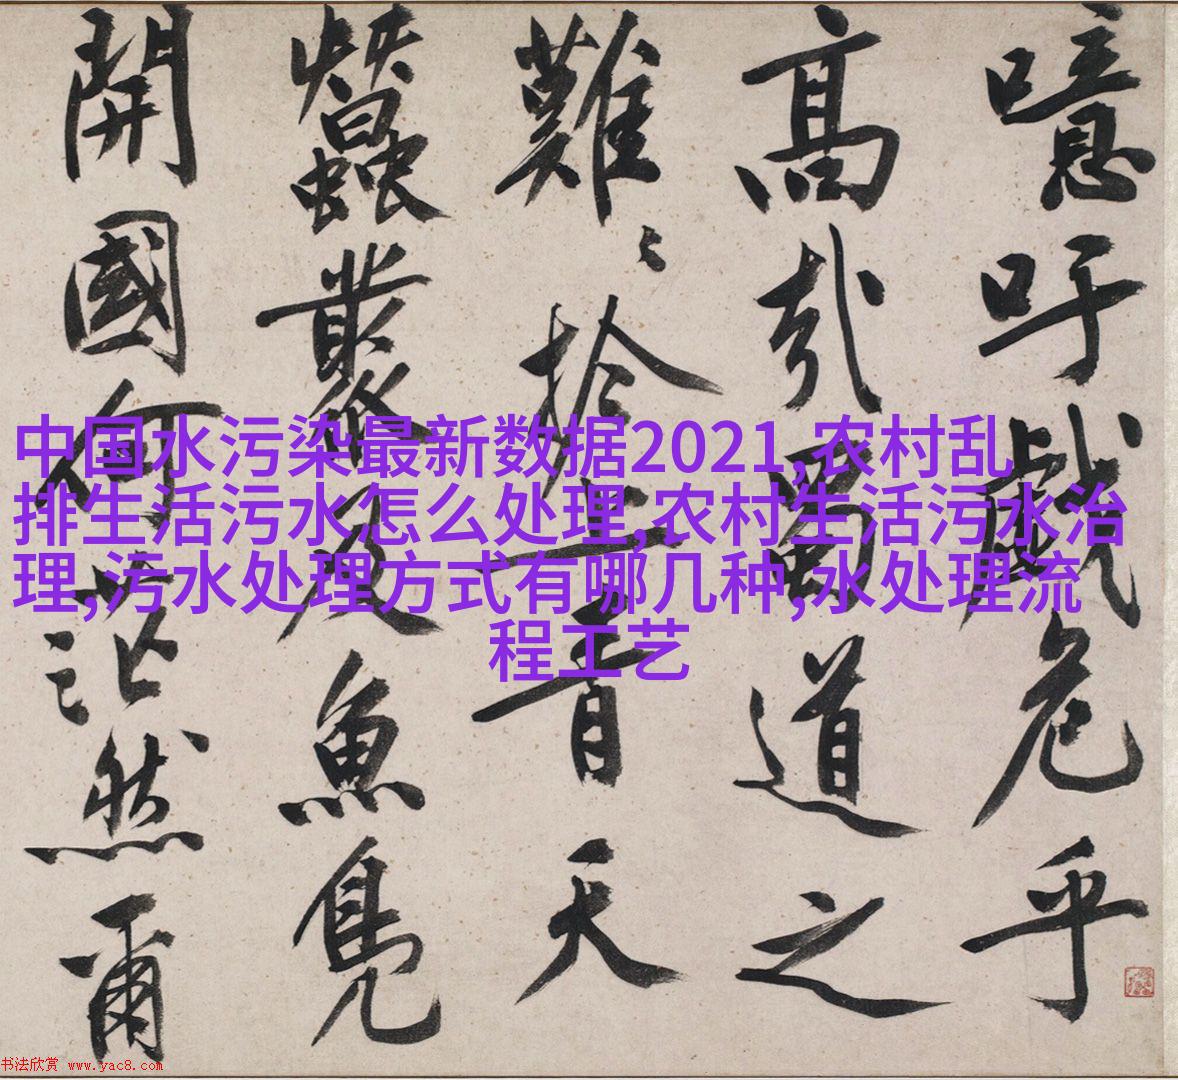 噫吁戲危乎
高哉蜀道之
難〻扵上青天
蠶叢及魚鳧
開國何茫然爾
中国水污染最新数据2021,农村乱
排生活污水怎么处理,农村生活污水治
理,污水处理方式有哪几种,水处理流
程工艺
书法欣赏 www.yac8.com